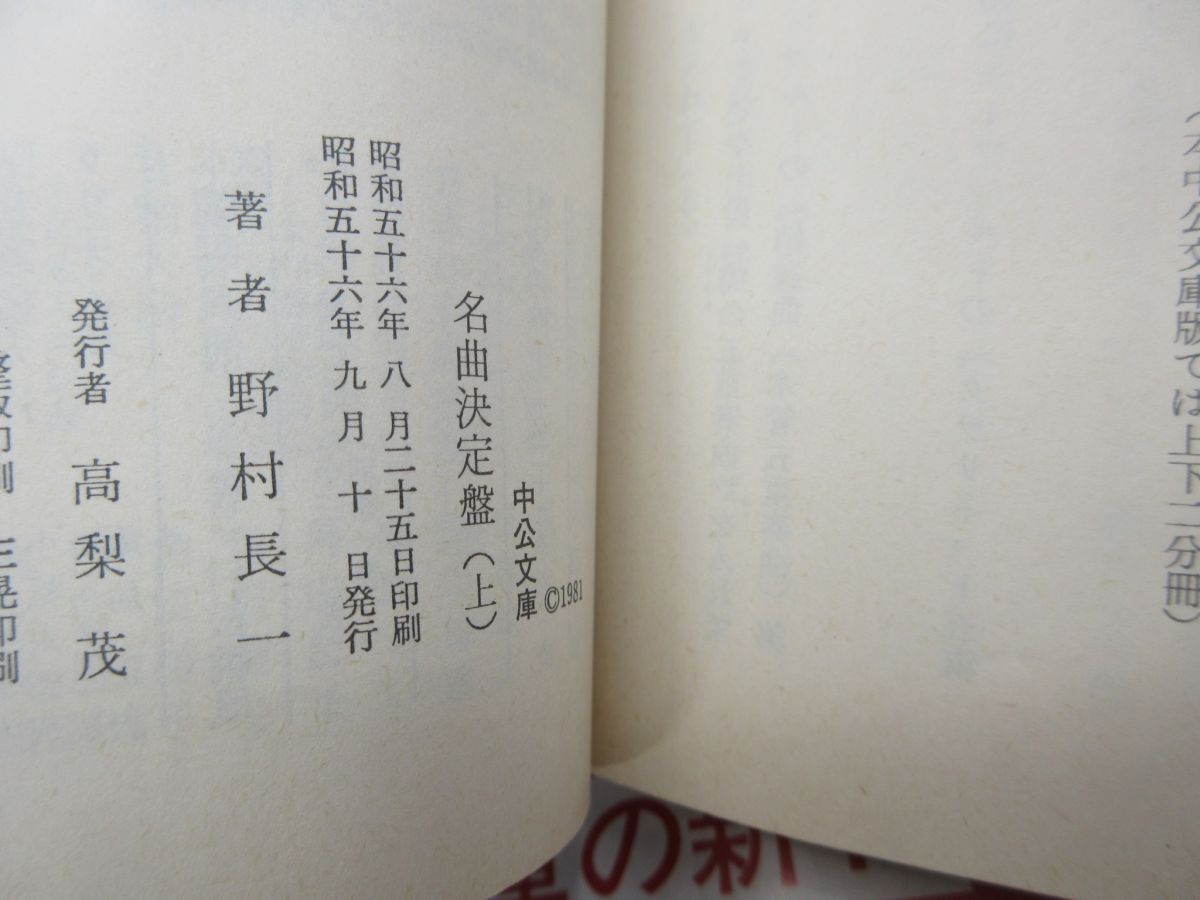 (本中公文庫版では上下二分冊)
中公文庫 ©1981
名曲決定盤(上)
昭和五十六年八月二十五日印刷
昭和五十六年九月十日発行
著者 野村長一
発行者 高梨茂
整版印刷 三晃印刷
の新